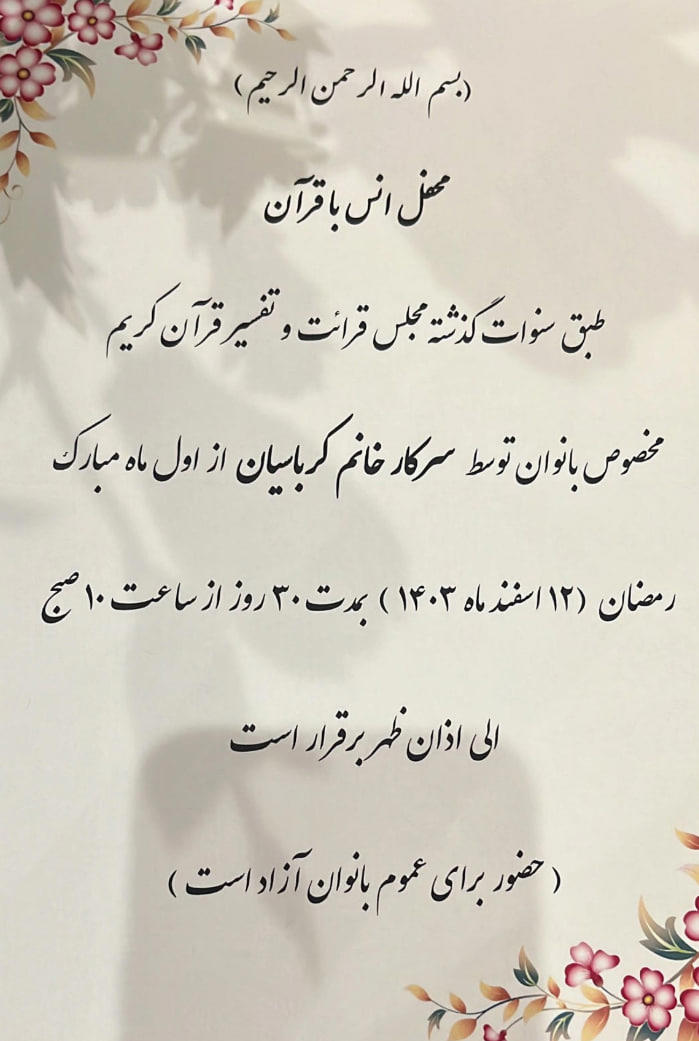 (بسم الله الرحمن الرحیم)
محفل انس با قرآن
طبق سنوات گذشته مجلس قرائت و تفسیر قرآن کریم
مخصوص بانوان توسط سرکار خانم کرباسیان از اول ماه مبارک
رمضان (۱۲ اسفند ماه ۱۴۰۳) بمدت ۳۰ روز از ساعت ۱۰ صبح
الی اذان ظهر برقرار است
(حضور برای عموم بانوان آزاد است)